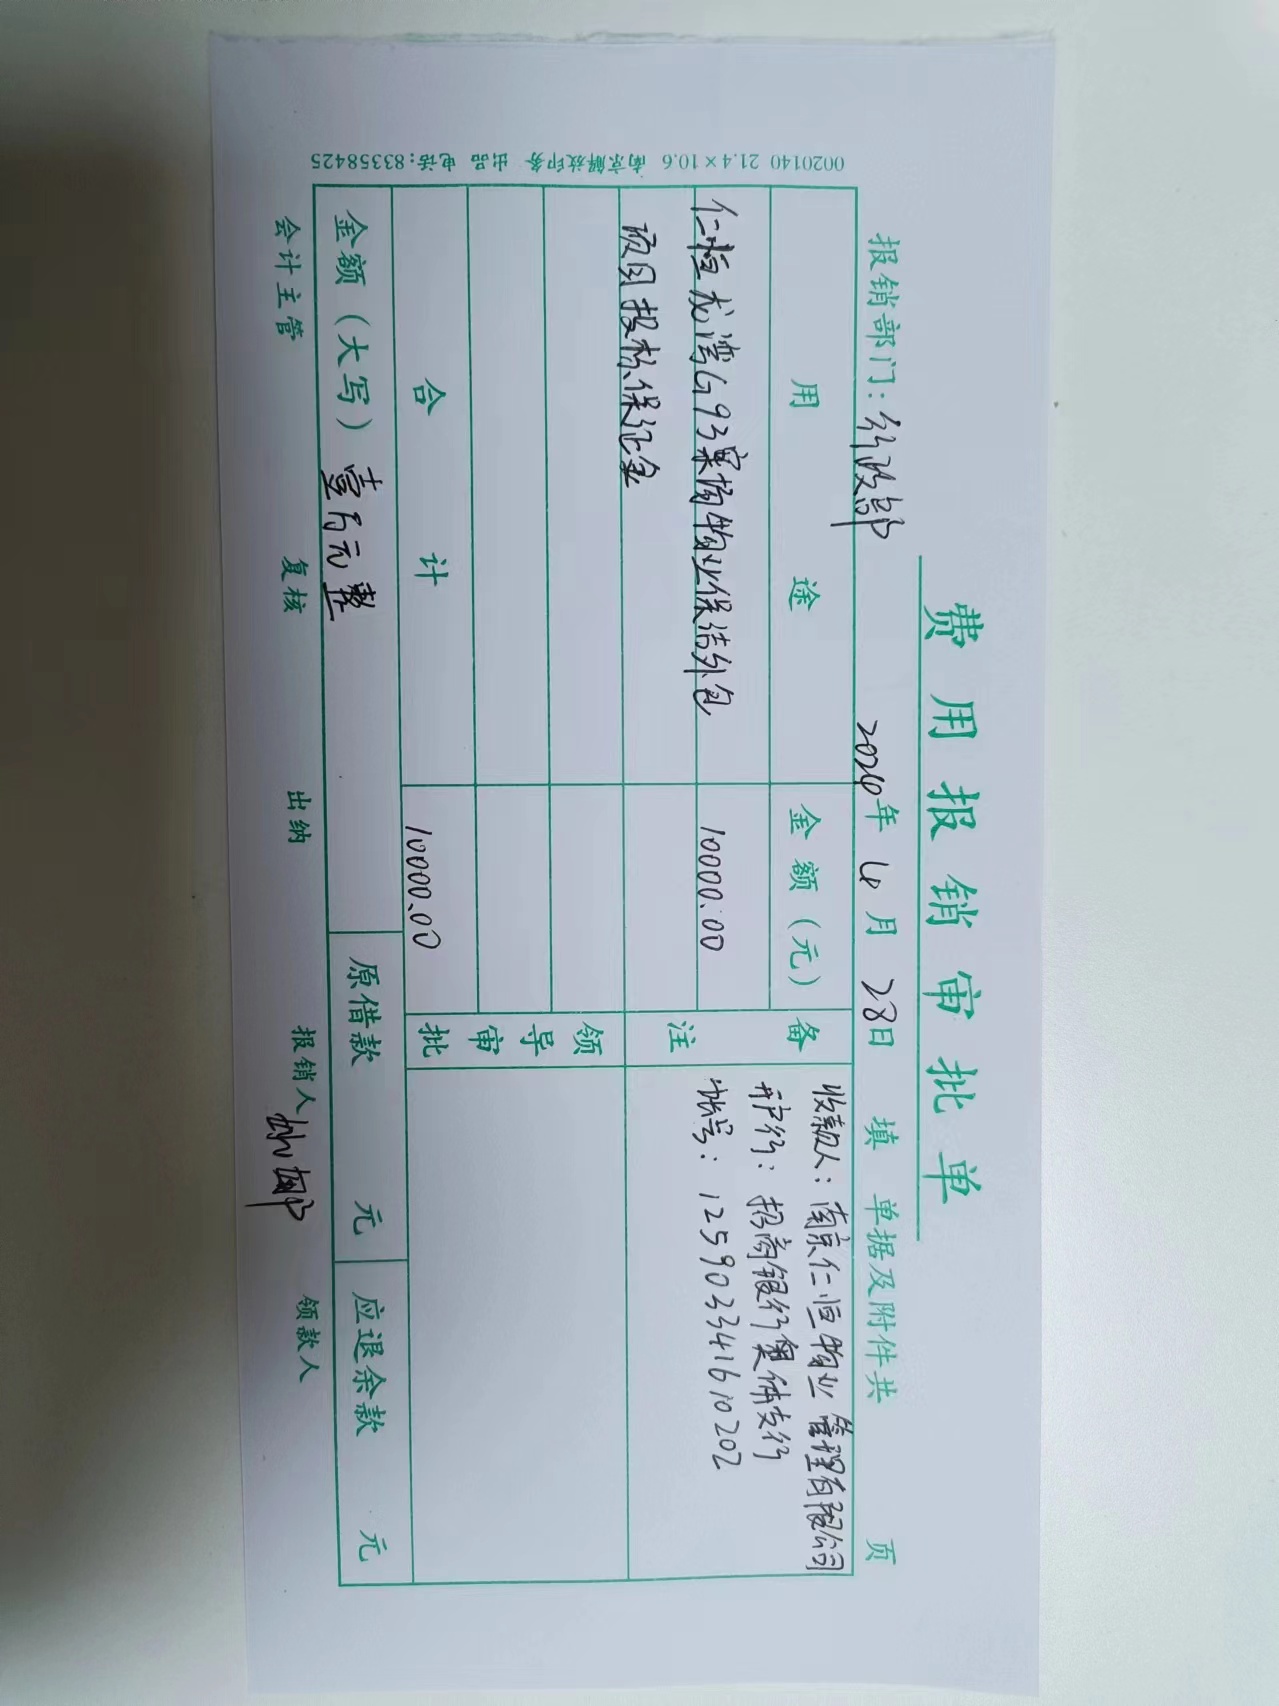 费用报销审批单
报销部门：行政部 2024年4月28日 填 单据及附件共 页
用途 金额（元） 备注
仁恒龙湾G93案场物业保洁外包 10000.00
项目投标保证金
收款人：南京仁恒物业管理有限公司
开户行：招商银行奥体支行
帐号：125903341610202
领导审批
合计 10000.00
金额（大写）壹万元整 原借款 元 应退余款 元
会计主管 复核 出纳 报销人 领款人
0020140 21.4×10.6 南京解放印务 出品 电话：83358425